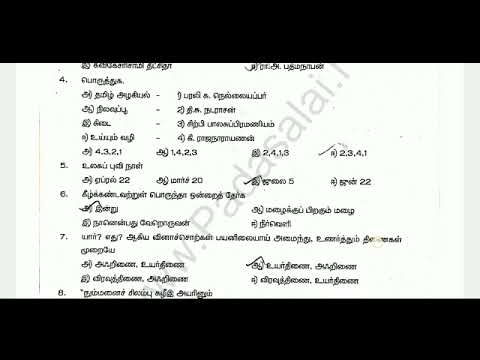 இ) கவிகேசரிசாமி தீட்சிதர் ஈ) ரா.அ. பத்மநாபன்
4. பொருத்துக.
அ) தமிழ் அழகியல் - 1) பரலி சு. நெல்லையப்பர்
ஆ) நிலவுப்பூ - 2) தி.சு. நடராசன்
இ) கிடை - 3) சிற்பி பாலசுப்பிரமணியம்
ஈ) உய்யும் வழி - 4) கி. ராஜநாராயணன்
அ) 4,3,2,1 ஆ) 1,4,2,3 இ) 2,4,1,3 ஈ) 2,3,4,1
5. உலகப் புவி நாள்
அ) ஏப்ரல் 22 ஆ) மார்ச் 20 இ) ஜூலை 5 ஈ) ஜுன் 22
6. கீழ்க்கண்டவற்றுள் பொருந்தா ஒன்றைத் தேர்க
அ) இன்று ஆ) மழைக்குப் பிறகும் மழை
இ) நானென்பது வேறொருவன் ஈ) நீர்வெளி
7. யார்? எது? ஆகிய வினாச்சொற்கள் பயனிலையாய் அமைந்து, உணர்த்தும் திணைகள்
முறையே
அ) அஃறிணை, உயர்திணை ஆ) உயர்திணை, அஃறிணை
இ) விரவுத்திணை, அஃறிணை ஈ) விரவுத்திணை, உயர்திணை
8. "நும்மனைச் சிலம்பு கழீஇ அயரினும்
www.Padasalai.